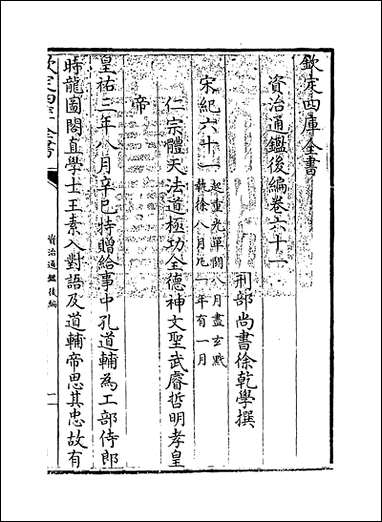 欽定四庫全書
資治通鑑後編卷六十一
刑部尚書徐乾學撰
宋紀六十一
起重光單閼八月盡玄黓
執徐八月凡一年有一月
仁宗體天法道極功全德神文聖武睿哲明孝皇
帝
皇祐三年八月辛巳特贈給事中孔道輔為工部侍郎
時龍圖閣直學士王素入對語及道輔帝思其忠故有
欽定四庫全書
資治通鑑後編
一